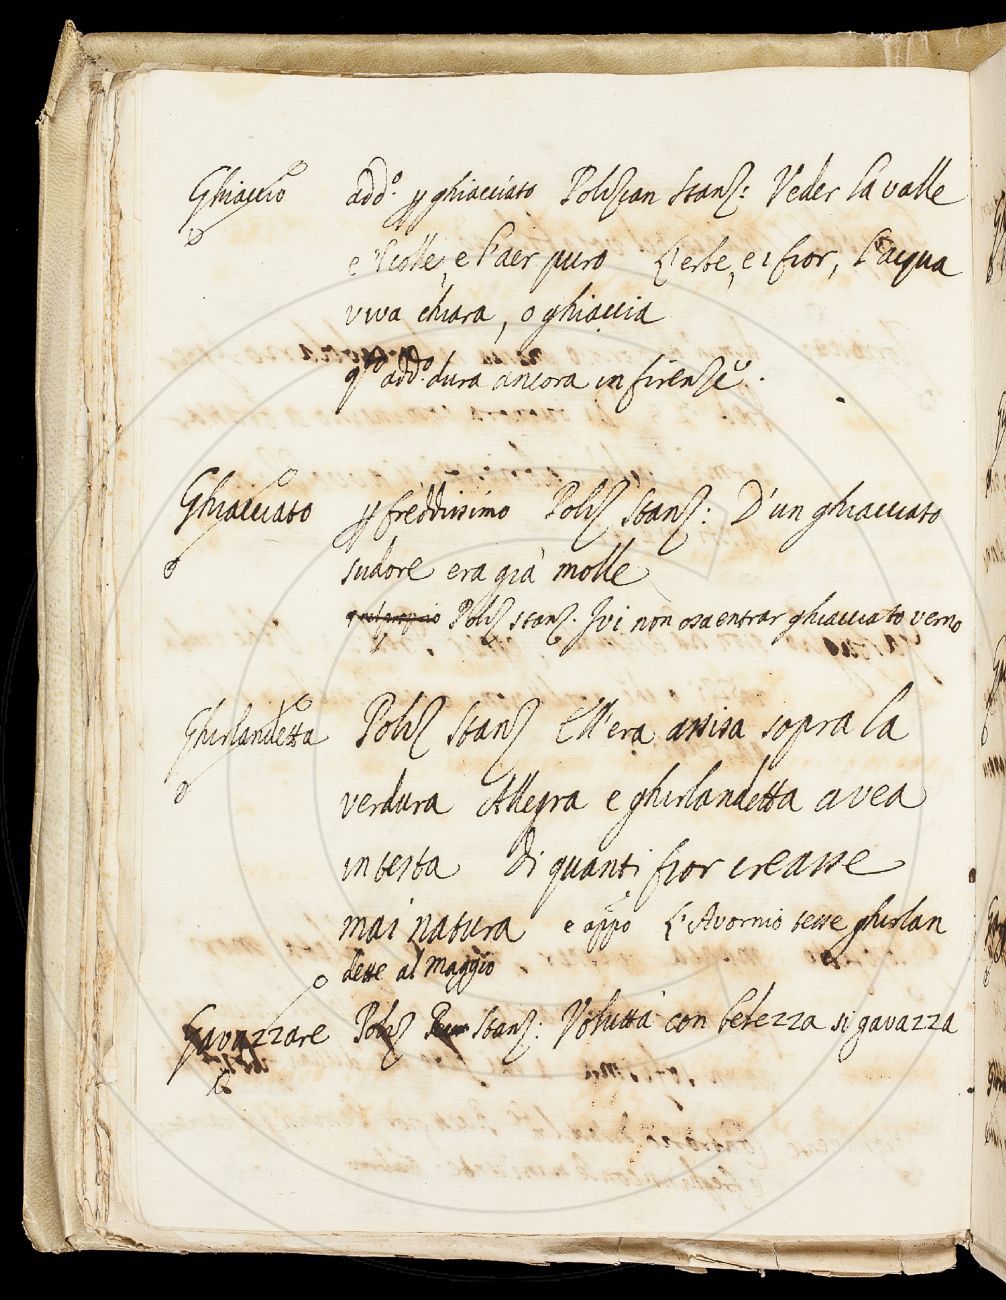 Ghiaccio addo. p ghiacciato Poliz̃ian Stanz̃: Veder la valle
e 'l colle, e l'aer puro L'erbe, e i fior, l'acqua
viva chiara, o ghiaccia
qto addo. dura ancora in firenze.
Ghiacciato p freddissimo Poliz̃ Stanz̃: D'un ghiacciato
sudore era già molle
Poliz̃ stanz̃. Ivi non osa entrar ghiacciato verno
Ghirlandetta Poliz̃ Stanz̃ Ell'era assisa sopra la
verdura Allegra e ghirlandetta avea
in testa Di quanti fior creasse
mai natura e appo L'Avornio tesse ghirlan
dette al Maggio
Gavazzare Poliz̃ Stanz̃: Volutta con belezza si gavazza